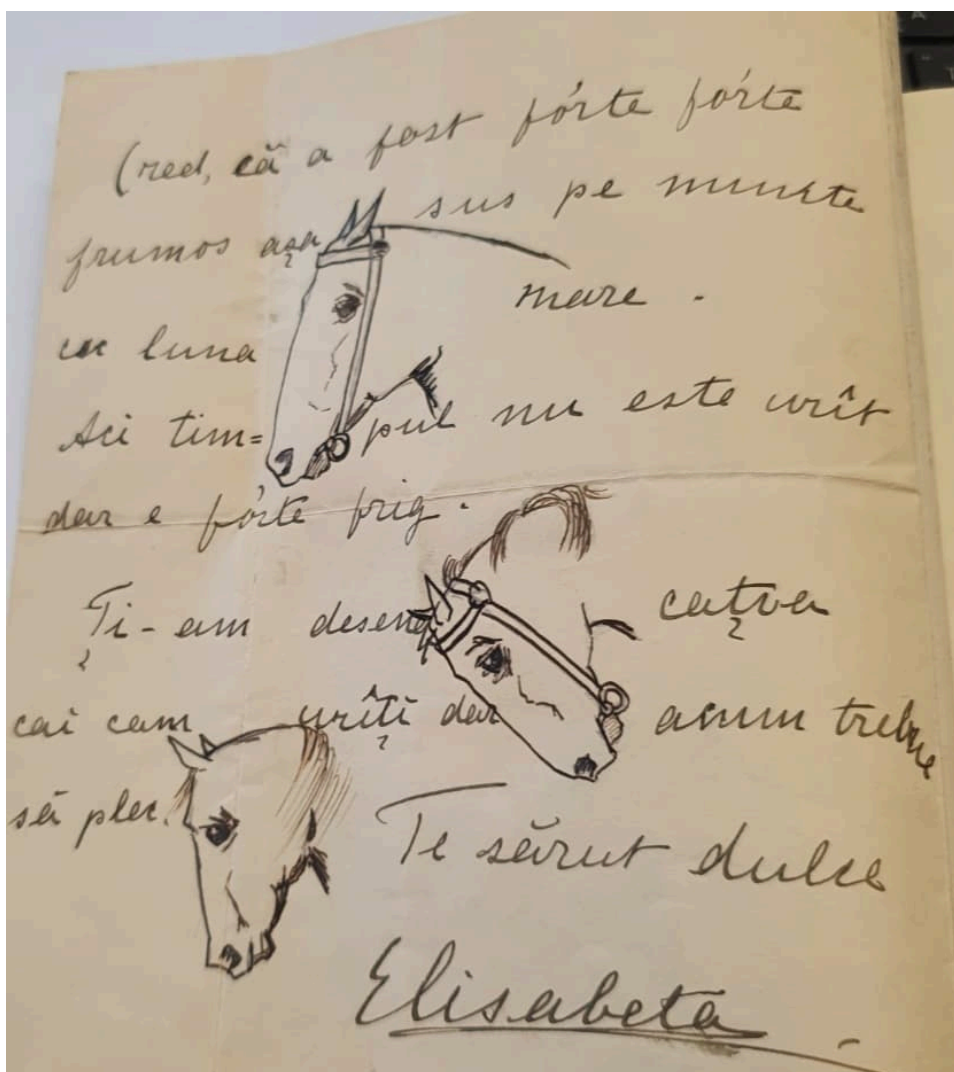 Cred, că a fost fórte fórte
frumos așa sus pe munte
cu luna mare.
Aci tim=pul nu este urît
dar e fórte frig.
Ți-am desenat cațva
cai cam urîți dar acum trebue
să plec.
Te sărut dulce
Elisabeta